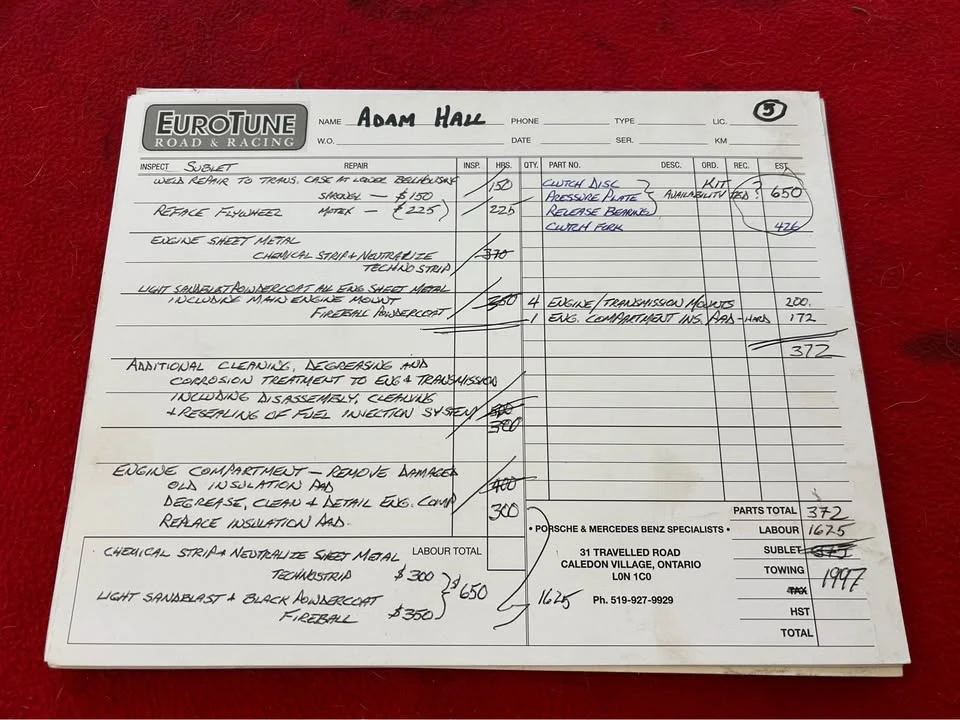 EUROTUNE
ROAD & RACING
NAME ADAM HALL PHONE TYPE LIC. 5
W.O. DATE SER. KM
INSPECT SUBLET REPAIR INSP. HRS. QTY. PART NO. DESC. ORD. REC. EST.
WELD REPAIR TO TRANS. CASE AT LOWER BELLHOUSING 150
- $150
REFACE FLYWHEEL MOTEK - {$225} 225
ENGINE SHEET METAL
CHEMICAL STRIP & NEUTRALIZE 370
TECHNOSTRIP
LIGHT SANDBLAST/POWDERCOAT ALL ENG SHEET METAL
INCLUDING MAIN ENGINE MOUNT 350
FIREBALL POWDERCOAT
ADDITIONAL CLEANING, DEGREASING AND
CORROSION TREATMENT TO ENG & TRANSMISSION
INCLUDING DISASSEMBLY, CLEANING
& RESEALING OF FUEL INJECTION SYSTEM
300
ENGINE COMPARTMENT - REMOVE DAMAGED
OLD INSULATION PAD 400
DEGREASE, CLEAN & DETAIL ENG. COMP 300
REPLACE INSULATION PAD.
CLUTCH DISC KIT
PRESSURE PLATE AVAILABILITY ? 650
RELEASE BEARING
CLUTCH FORK 426
4 ENGINE/TRANSMISSION MOUNTS 200.
1 ENG. COMPARTMENT INS. PAD - HARD 172
372
LABOUR TOTAL
CHEMICAL STRIP & NEUTRALIZE SHEET METAL
TECHNOSTRIP $300
$650
LIGHT SANDBLAST & BLACK POWDERCOAT
FIREBALL $350
1625
• PORSCHE & MERCEDES BENZ SPECIALISTS •
31 TRAVELLED ROAD
CALEDON VILLAGE, ONTARIO
L0N 1C0
Ph. 519-927-9929
PARTS TOTAL 372
LABOUR 1625
SUBLET 375
TOWING 1997
TAX
HST
TOTAL